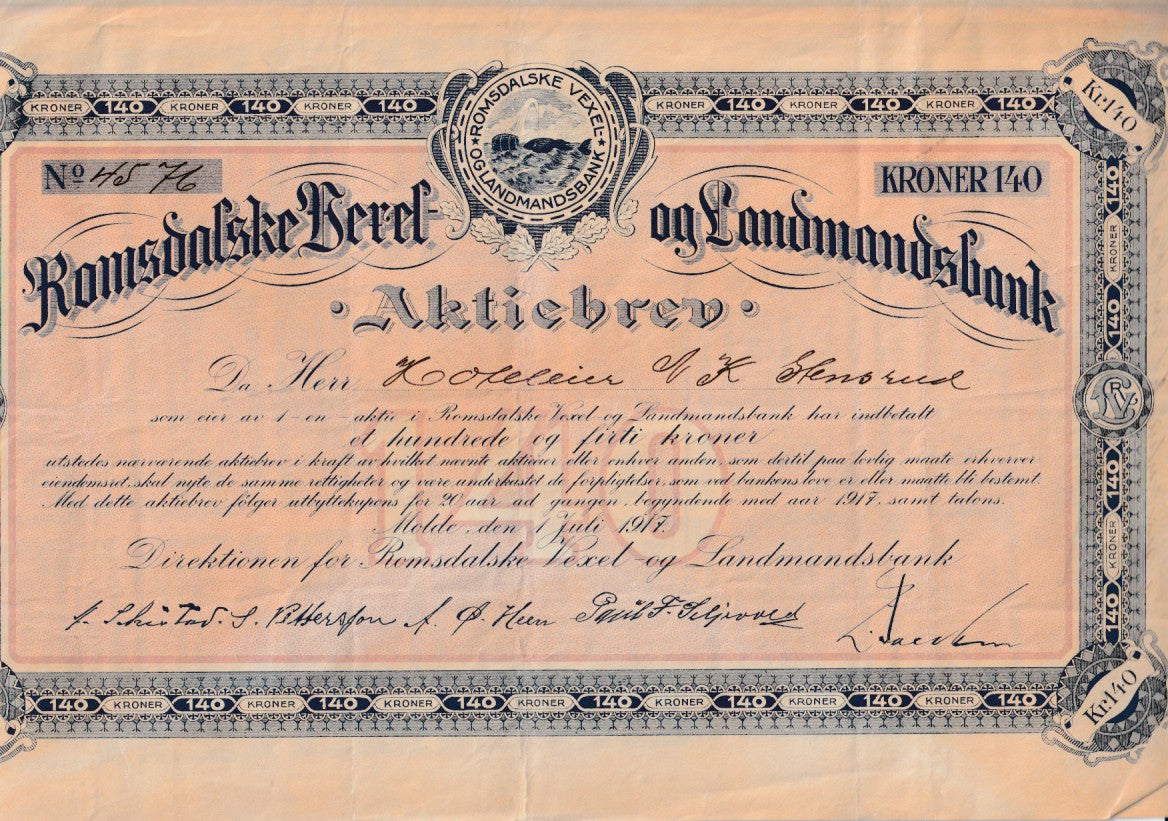 KRONER 140 KRONER 140 KRONER 140
ROMSDALSKE VEXEL-
OG LANDMANDSBANK
KRONER 140 KRONER 140 KRONER 140
Kr. 140
No 4576
KRONER 140
Romsdalske Vexel- og Landmandsbank
Aktiebrev
Da Herr Hotelleier K Stensrud
som eier av 1-en-aktie i Romsdalske Vexel-og Landmandsbank har indbetalt
et hundrede og firti kroner
utstedes nærværende aktiebrev i kraft av hvilket nævnte aktieier eller enhver anden, som dertil paa lovlig maate erhverver
eiendomsret, skal nyte de samme rettigheter og være underkastet de forpligtelser, som ved bankens love er eller maatte bli bestemt.
Med dette aktiebrev følger utbyttekupons for 20 aar ad gangen, begyndende med aar 1917, samt talons.
Molde, den 1 Juli 1917
Direktionen for Romsdalske Vexel-og Landmandsbank
140
S. Pettersson A. Ø. Heen Paul F.
140 KRONER 140 KRONER 140 KRONER 140
140 KRONER 140 KRONER 140 KRONER 140 KRONER 140 KRONER 140 KRONER 140 KRONER 140
Kr. 140